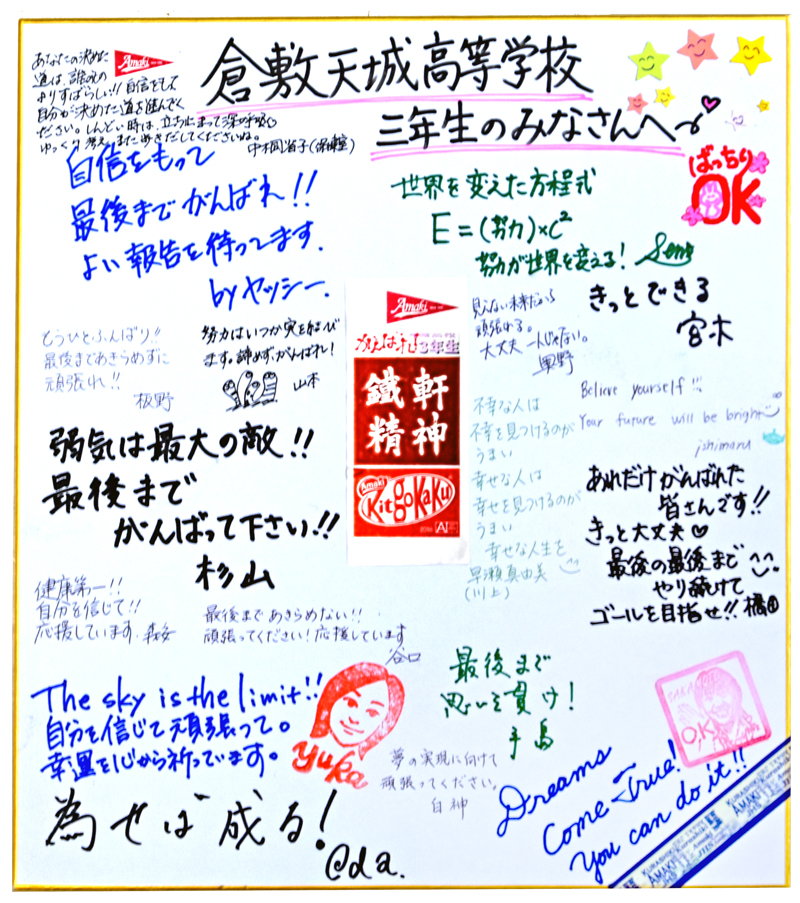 倉敷天城高等学校
三年生のみなさんへ
あなたの決めた
道は、誰よりも
よりすばらしい!! 自信をもって
自分が決めた道を進んでく
ださい。しんどい時は、立ち止まって深呼吸
ゆっくり考え、また歩きだしてくださいね。
Amaki
自信をもって
最後までがんばれ!!
よい報告を待ってます.
by ヤッシー.
ばっちり
OK
世界を変えた方程式
E=(努力)×C²
努力が世界を変える!
見えない未来だから
頑張れる。
大丈夫 一人じゃない。
きっとできる
宮木
もうひとふんばり!!
最後まであきらめずに
頑張れ!!
板野
努力はいつか実を結び
ます。諦めず、がんばれ!
山本
Amaki
がんばれ3年生
鐵軒
精神
Amaki
Kit go Kaku
Believe yourself!!
Your future will be bright
ishimaru
不幸な人は
不幸を見つけるのが
うまい
幸せな人は
幸せを見つけるのが
うまい
幸せな人生を
早瀬真由美
(川上)
弱気は最大の敵!!
最後まで
がんばって下さい!!
杉山
あれだけがんばれた
皆さんです!!
きっと大丈夫♡
最後の最後まで
やり続けて
ゴールを目指せ!! 橋田
健康第一!!
自分を信じて!!
応援しています.
最後まであきらめない!!
頑張ってください!応援しています
谷口
The sky is the limit!!
自分を信じて頑張って。
幸運を心から祈っています。
yuka
最後まで
思いを貫け!
手島
夢の実現に向けて
頑張ってください。
白神
OK
為せば成る!
@da.
Dreams
Come True!
You can do it!!
AMAKI